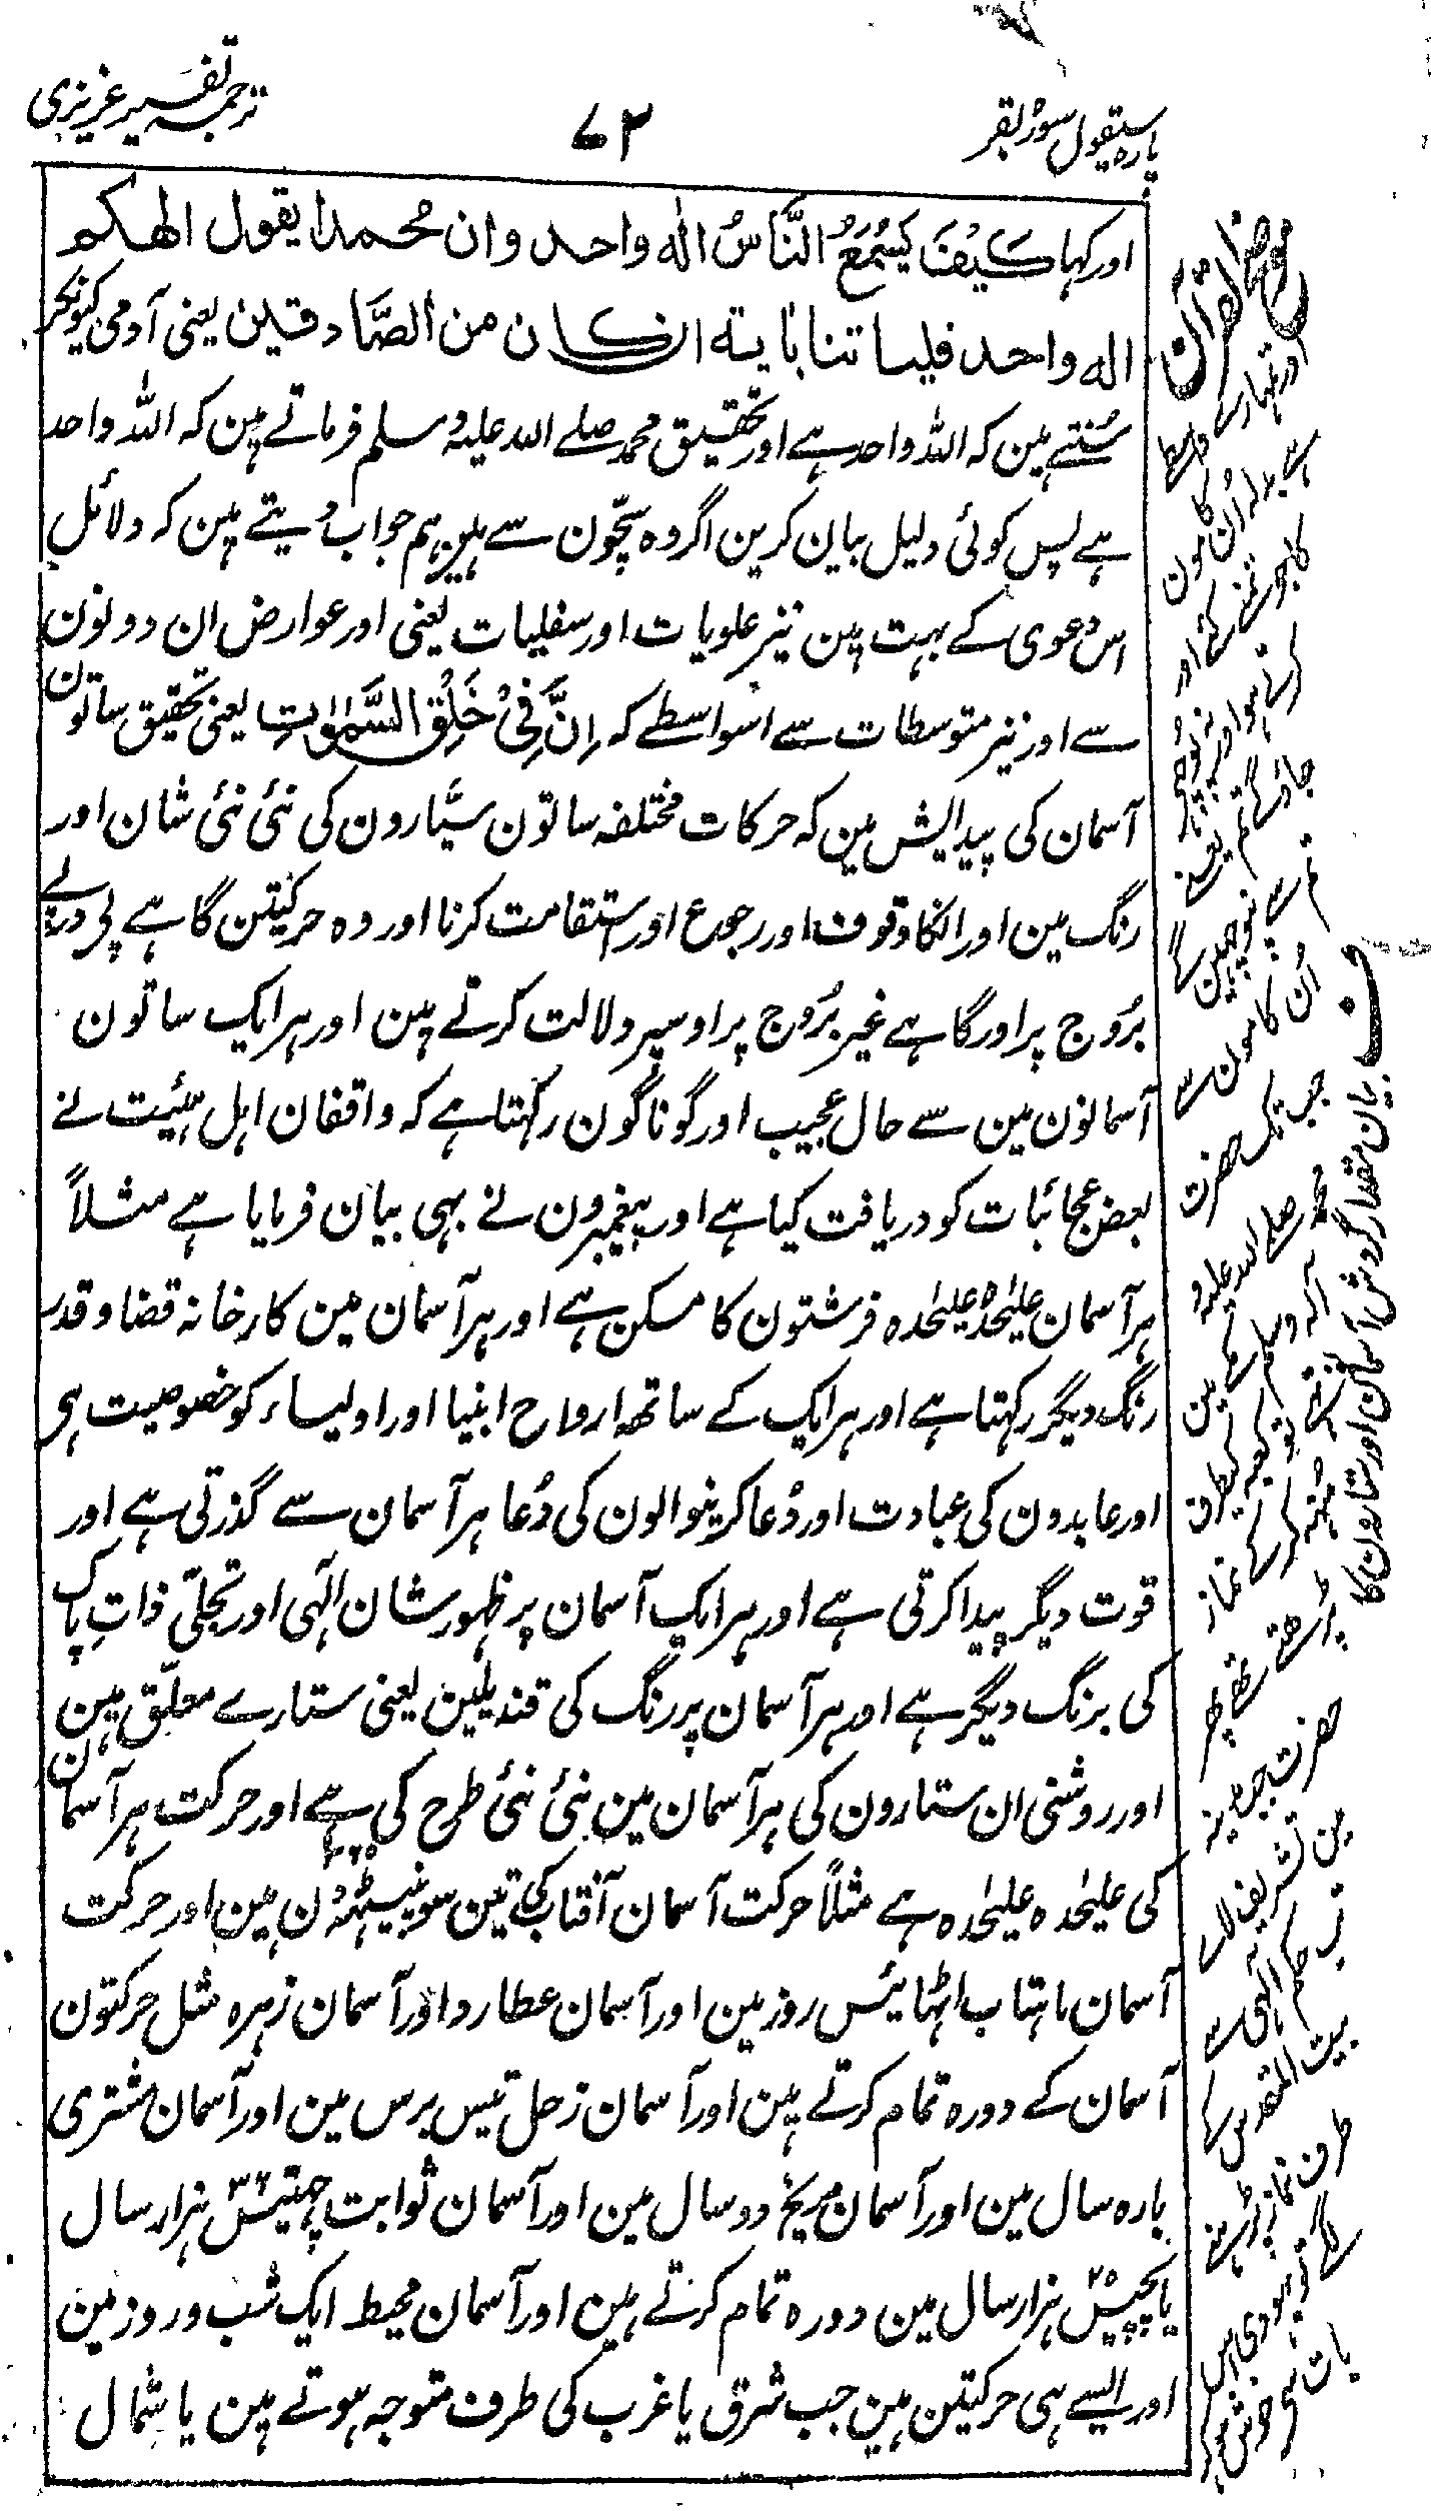 پارہ سیقول سورۂ بقر
۷۲
ترجمہ تفسیر عزیزی
اور کہا کَیْفَ یَسْمَعُ النَّاسُ الٰہ واحد وان مُحمدا یقول الٰھکم
الہ واحد فلیاتنا بایتہ انکان من الصَّادقین یعنی آدمی کیونکر
سُنتے ہین کہ اللہ واحد ہے اور تحقیق محمد صلے اللہ علیہ وسلم فرماتے ہین کہ اللہ واحد
ہے پس کوئی دلیل بیان کرین اگر وہ سچّون سے ہین ہم جواب دیتے ہین کہ دلائل
اس دعوی کے بہت ہین نیز علویات اور سفلیات یعنی اور عوارض ان دونون
سے اور نیز متوسطات سے اسواسطے کہ اِنَّ فِیْ خَلْقِ السَّمٰوٰتِ یعنی تحقیق ساتون
آسمان کی پیدایش مین کہ حرکات مختلفہ ساتون سیّارون کی نئی نئی شان اور
رنگ مین اور انکا وقوف اور رجوع اور استقامت کرنا اور وہ حرکیتن گاہے پی درپے
بُروج پر اور گاہے غیر بُروج پر اوسپر دلالت کرتے ہین اور ہر ایک ساتون
آسمانون مین سے حال عجیب اور گوناگون رکہتا ہے کہ واقفان اہل ہیئت نے
بعض عجائبات کو دریافت کیا ہے اور پیغمبرون نے بہی بیان فرمایا ہے مثلاً
ہر آسمان علیٰحدہ علیٰحدہ فرشتون کا مسکن ہے اور ہر آسمان مین کارخانہ قضا و قدر
رنگ دیگر رکہتا ہے اور ہر ایک کے ساتھ ارواح انبیا اور اولیاء کو خصوصیت ہی
اور عابدون کی عبادت اور دُعا کرینوالون کی دُعا ہر آسمان سے گذرتی ہے اور
قوت دیگر پیدا کرتی ہے اور ہر ایک آسمان پر ظہور شان الٰہی اور تجلّی ذاتِ پاک
کی برنگ دیگر ہے اور ہر آسمان پر رنگ کی قندیلین یعنی ستارے معلّق ہین
اور روشنی ان ستارون کی ہر آسمان مین نئی نئی طرح کی ہے اور حرکت ہر آسمان
کی علیٰحدہ علیٰحدہ ہے مثلاً حرکت آسمان آفتاب کی تین سو پینسٹھ دن مین اور حرکت
آسمان ماہتاب اٹہائیس روز مین اور آسمان عطارد اور آسمان زہرہ مثل حرکتون
آسمان کے دورہ تمام کرتے ہین اور آسمان زحل تیس برس مین اور آسمان مشتری
بارہ سال مین اور آسمان مریخ دو سال مین اور آسمان ثوابت چہتیس ۳۶ ہزار سال
یا پچیس ۲۵ ہزار سال مین دورہ تمام کرتے ہین اور آسمان محیط ایک شب و روز مین
اور ایسے ہی حرکیتن ہین جب شرق یا غرب کی طرف متوجہ ہوتے ہین یا شمال
موضح القرآن
اور تمہارے واسطے
ہے بدلہ اُن کامون
کا جو تمنے کئے اور
جاؤگے تم یعنے
تم سے نہ پوچھین گے
اُن کامون سے
جب تک حضرت
محمد صلے اللہ علیہ و
نماز
پڑھتے تھے پھر
حضرت جب مدینہ
مین تشریف لائے
تب حکم الٰہی سے
بیت المقدس کے
طرف نماز پڑہنے
لگے تب یہودی اس
بات سے خوش ہوکر
ف بیان مقدار گردش آسمان اور ستارون کا